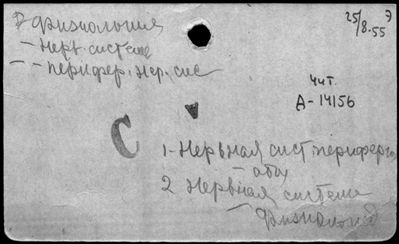 Физиология
25/8-55 э
- Нерв. система
- - перифер. нер. сис
чит.
А-14156
С
1-Нервная сист. перифер
2 Нервная система
- физиология